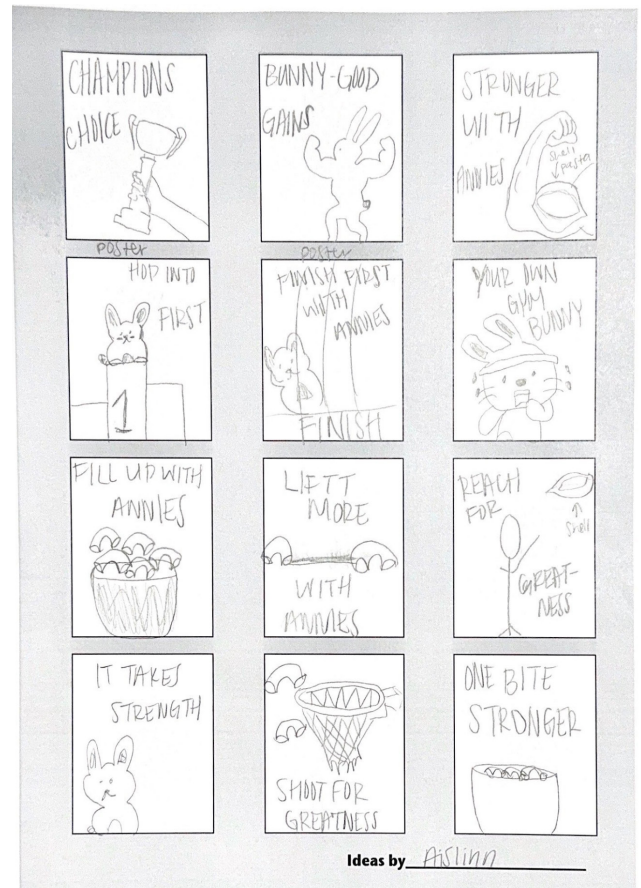 CHAMPIONS
CHOICE
BUNNY-GOOD
GAINS
STRONGER
WITH
ANNIES
shell
pasta
poster
HOP INTO
FIRST
1
poster
FINISH FIRST
WITH
ANNIES
FINISH
YOUR OWN
GYM
BUNNY
FILL UP WITH
ANNIES
LIFTT
MORE
WITH
ANNIES
REACH
FOR
shell
GREAT-
NESS
IT TAKES
STRENGTH
SHOOT FOR
GREATNESS
ONE BITE
STRONGER
Ideas by Aislinn